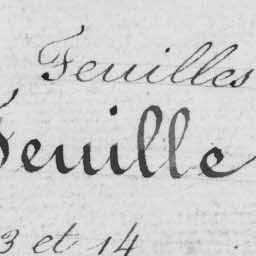 Feuilles
Feuille
3 et 14